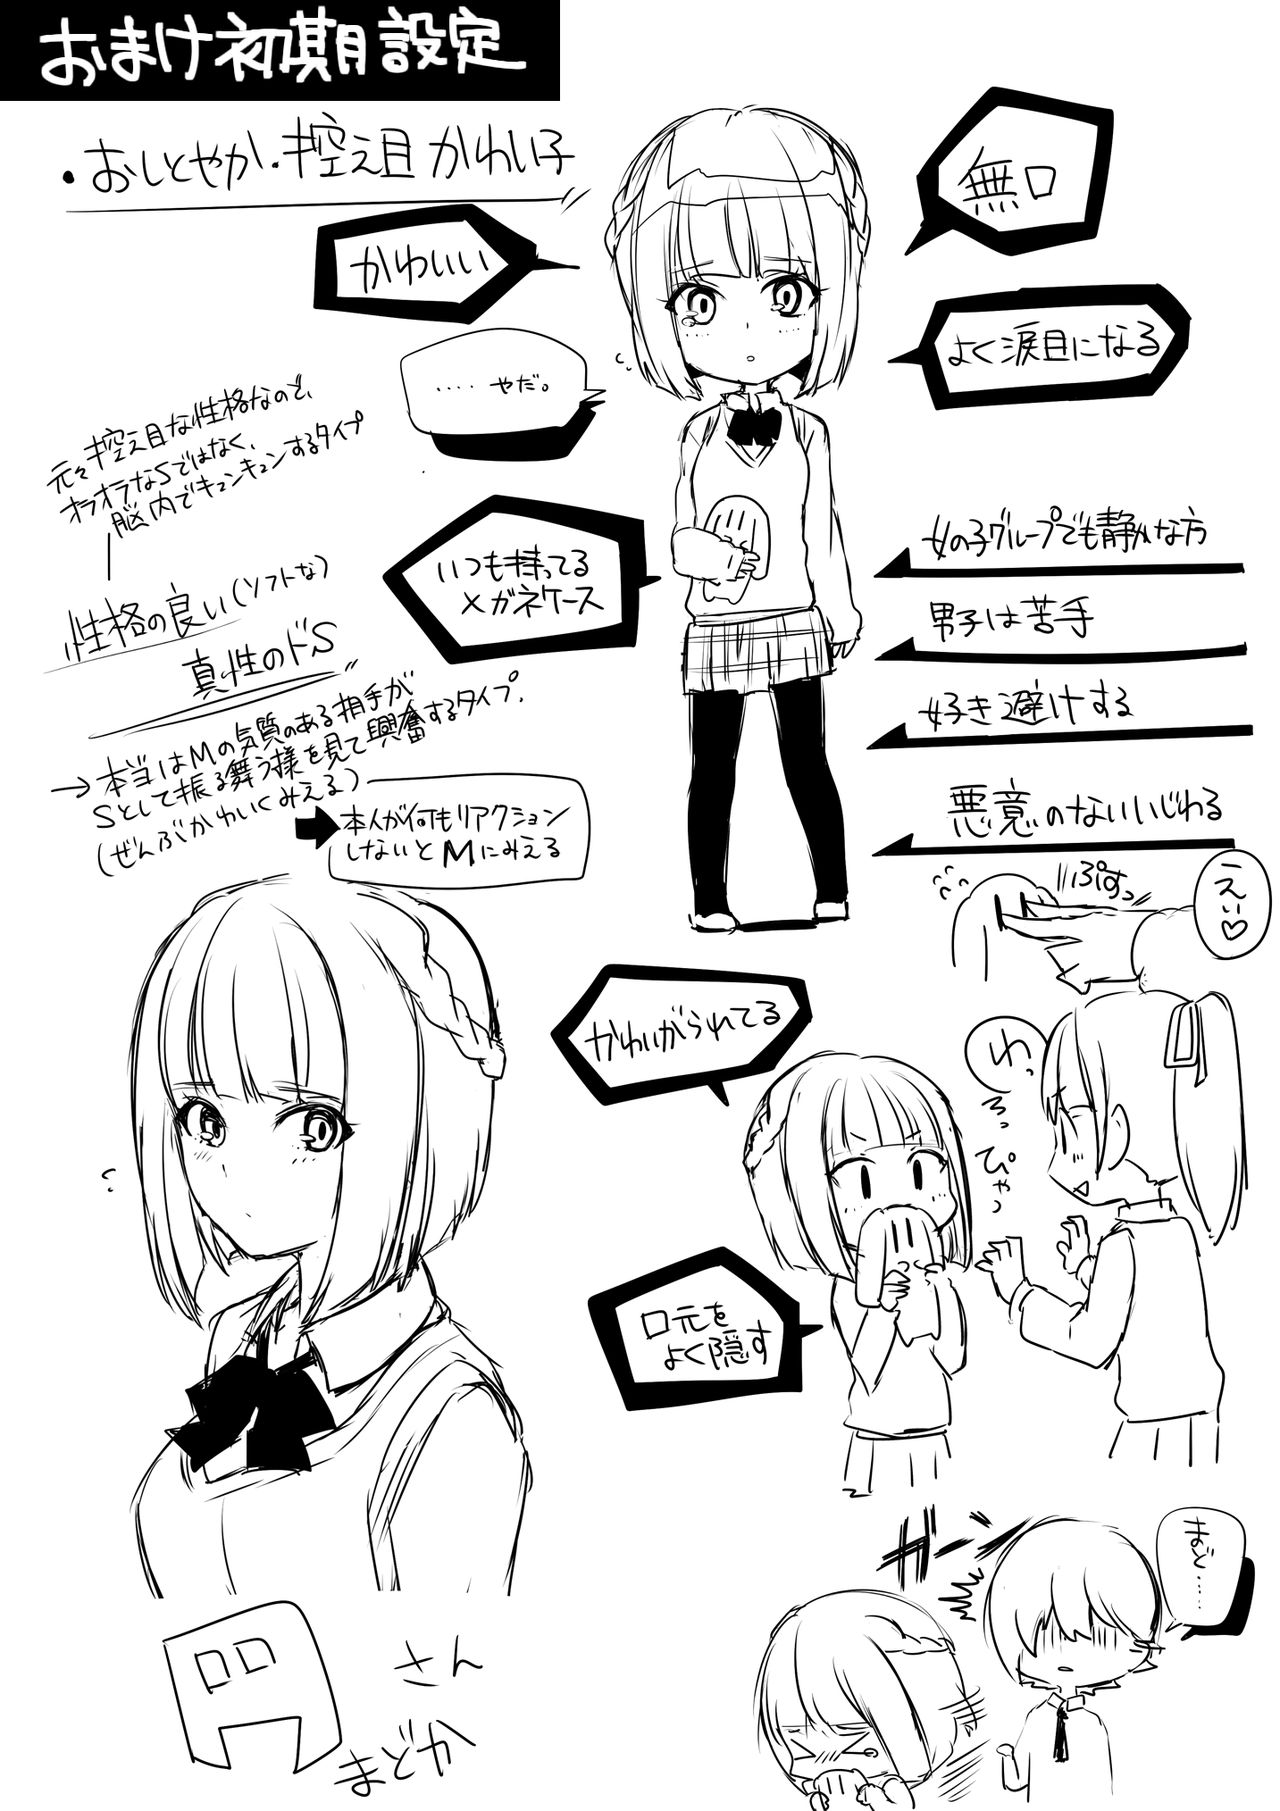 おまけ初期設定
・おしとやか・控え目かわい子
かわいい
無口
よく涙目になる
‥‥やだ。
元々控え目な性格なので、
オラオラなSではなく、
脳内でキュンキュンするタイプ
いつも持ってる
メガネケース
女の子グループでも静かな方
男子は苦手
好き避けする
悪意のないいじわる
性格の良い(ソフトな)
真性のドS
→本当はMの気質のある相手が
Sとして振る舞う様を見て興奮するタイプ.
(ぜんぶかわいくみえる)
本人が何もリアクション
しないとMにみえる
ぷすっ
えい♡
かわいがられてる
わっ
ろっ
ぴゃっ
口元を
よく隠す
ガーン
まど……
さん
まどか